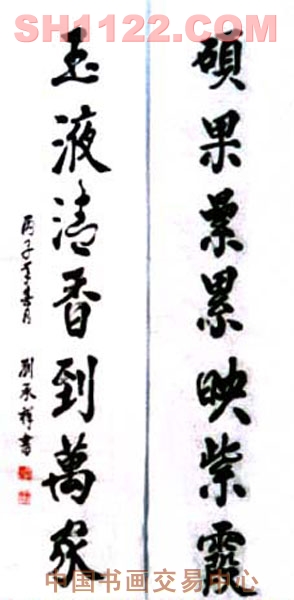 SH1122.COM
碩果纍累映紫霞
玉液清香到萬家
丙子年春月
劉承祥書
中国书画交易中心